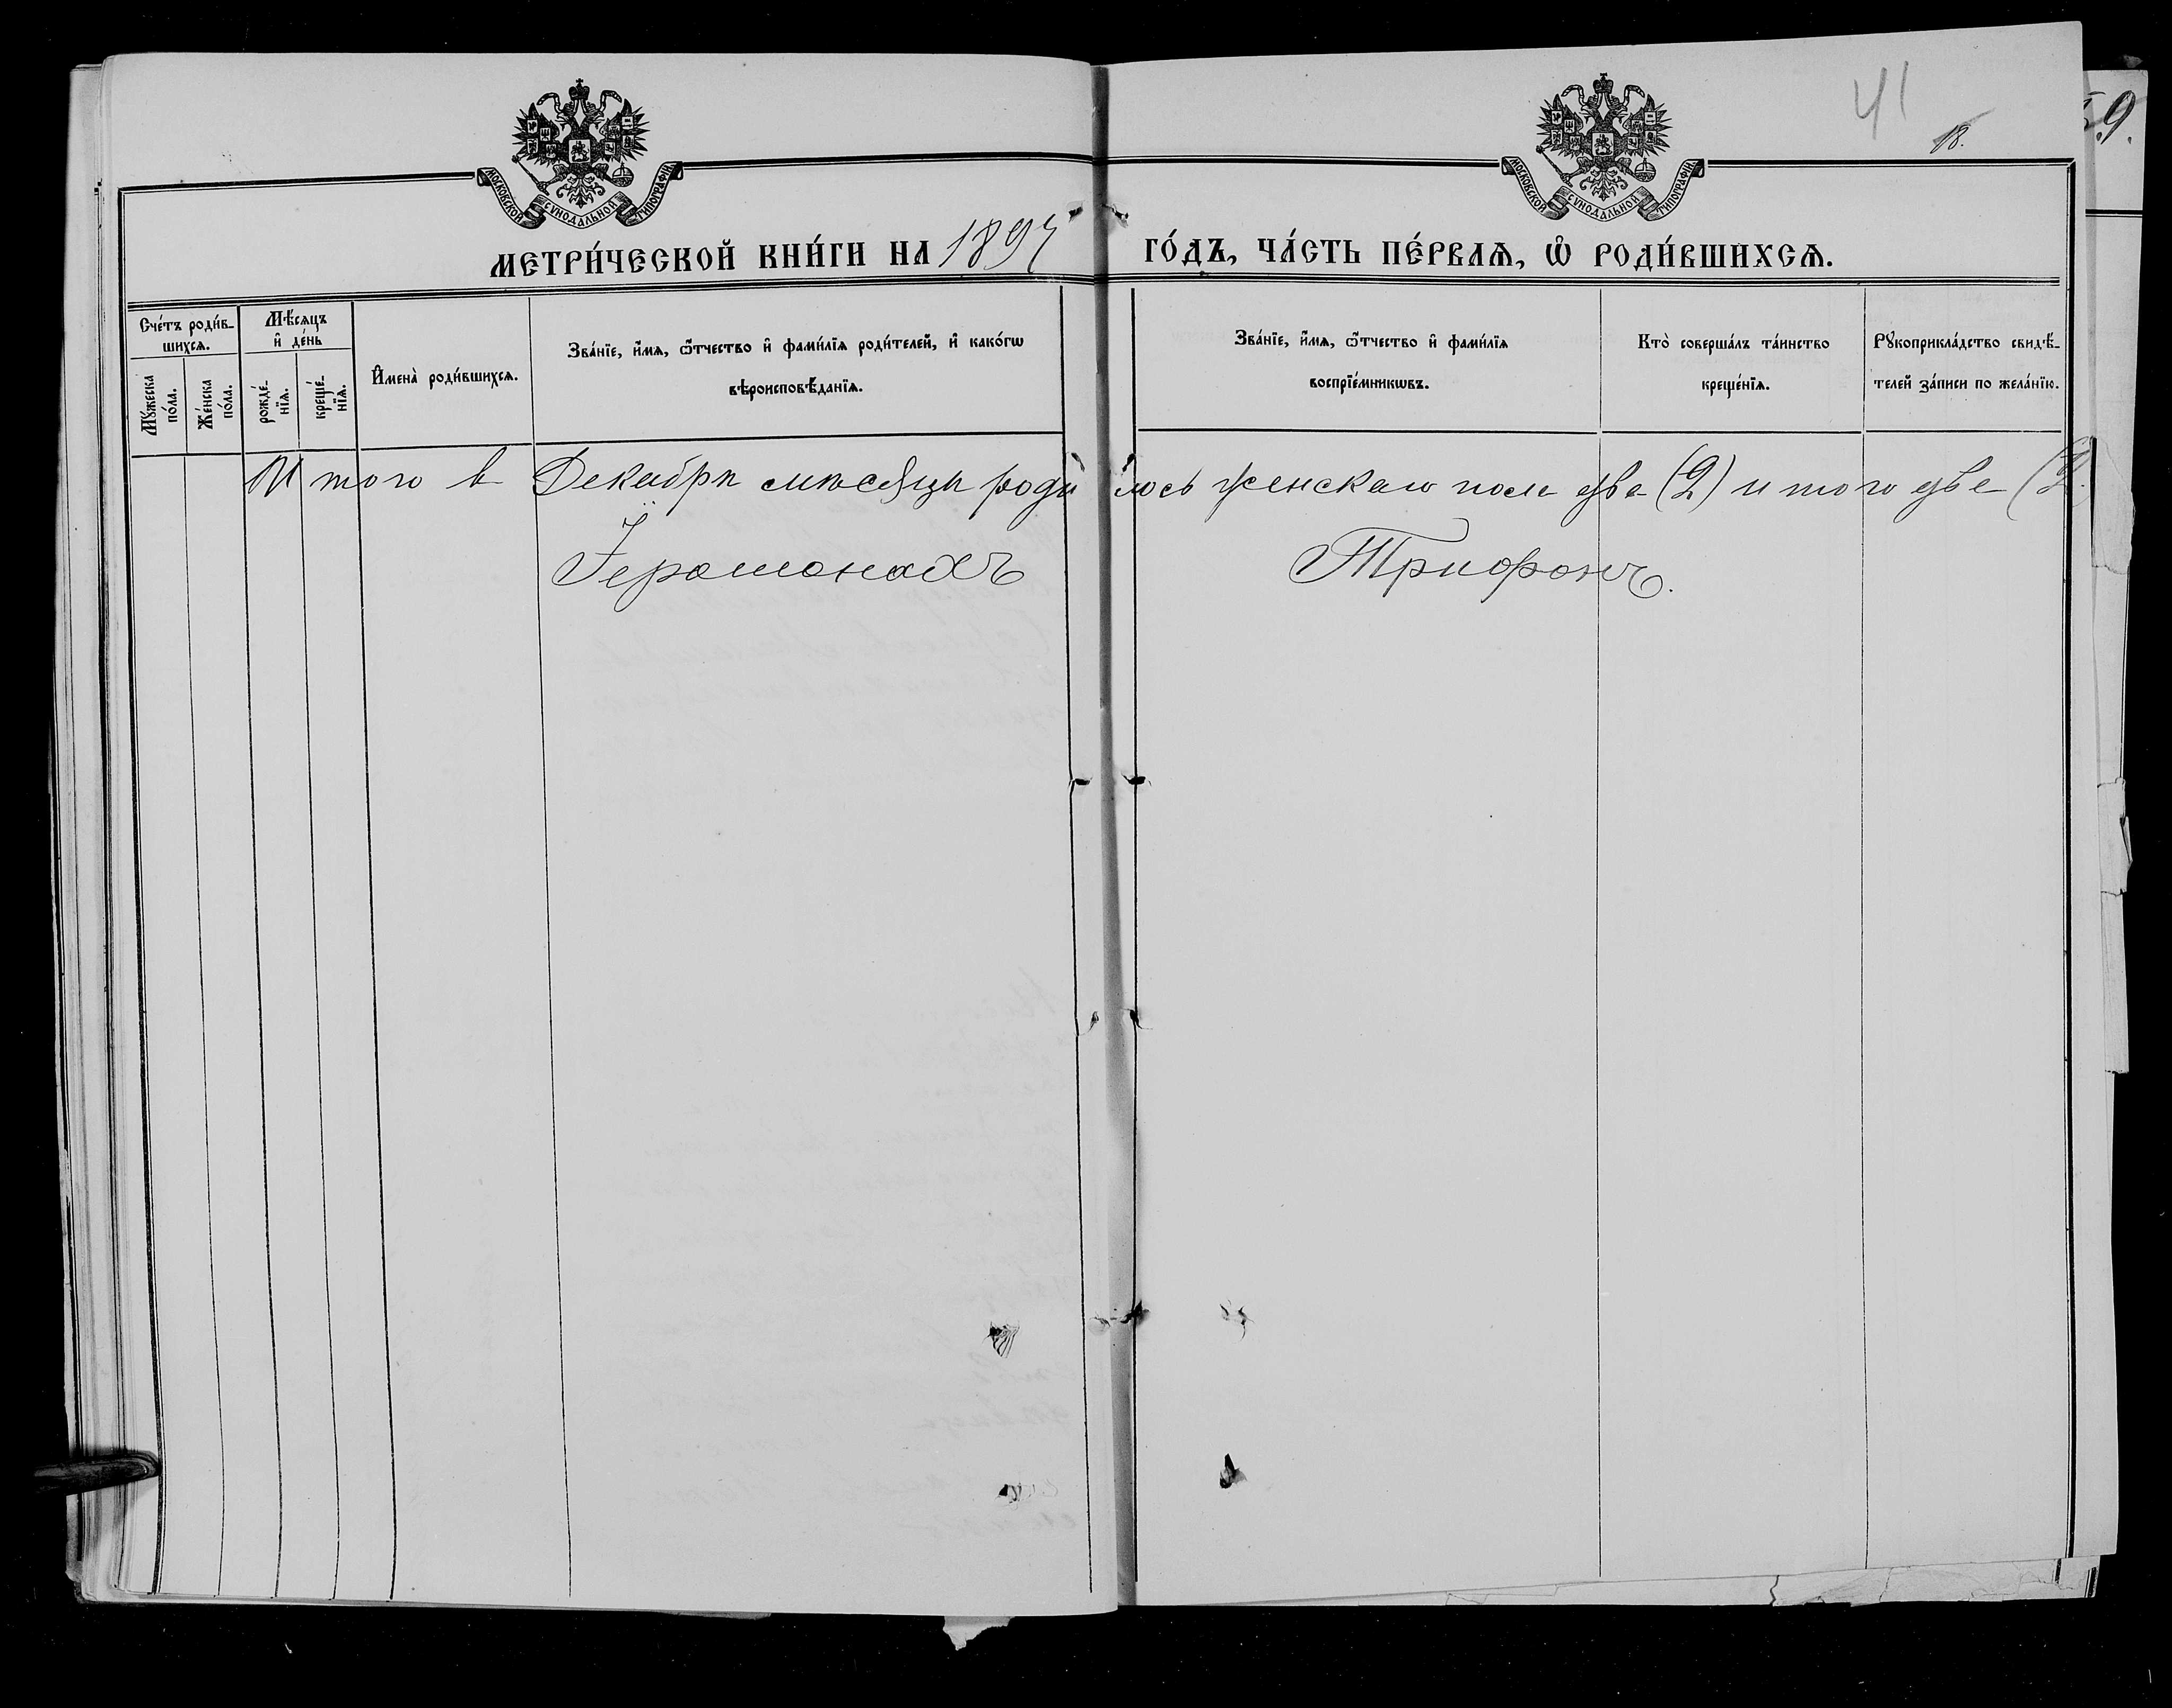 41
18.
9.
МОСКОВСКОЙ СУНОДАЛЬНОЙ ТИПОГРАФІИ
МОСКОВСКОЙ СУНОДАЛЬНОЙ ТИПОГРАФІИ
МЕТРИ́ЧЕСКОЙ КНИ́ГИ НА 1897 ГО́ДЪ, ЧА́СТЬ ПЕ́РВАѦ, Ѽ РОДИ́ВШИХСѦ.
Сче́тъ роди́в-
шихсѧ.
Мꙋ́жеска
по́ла.
Же́нска
по́ла.
Мѣ́сѧцъ
и҆ де́нь
рожде́-
нїѧ.
креще́-
нїѧ.
И҆мена̀ роди́вшихсѧ.
Зва́нїе, и҆́мѧ, ѻ҆́тчество и҆ фами́лїѧ роди́телей, и҆ како́гѡ
вѣроисповѣ́данїѧ.
Зва́нїе, и҆́мѧ, ѻ҆́тчество и҆ фами́лїѧ
воспрїе́мникѡвъ.
Кто̀ соверша́лъ та́инство
креще́нїѧ.
Рꙋкоприкла́дство свидѣ́-
телей за́писи по жела́нїю.
Итого в Декабрѣ мѣсяцѣ родилось женскаго пола два (2) итого две (2)
Іеромонахъ Трифонъ.